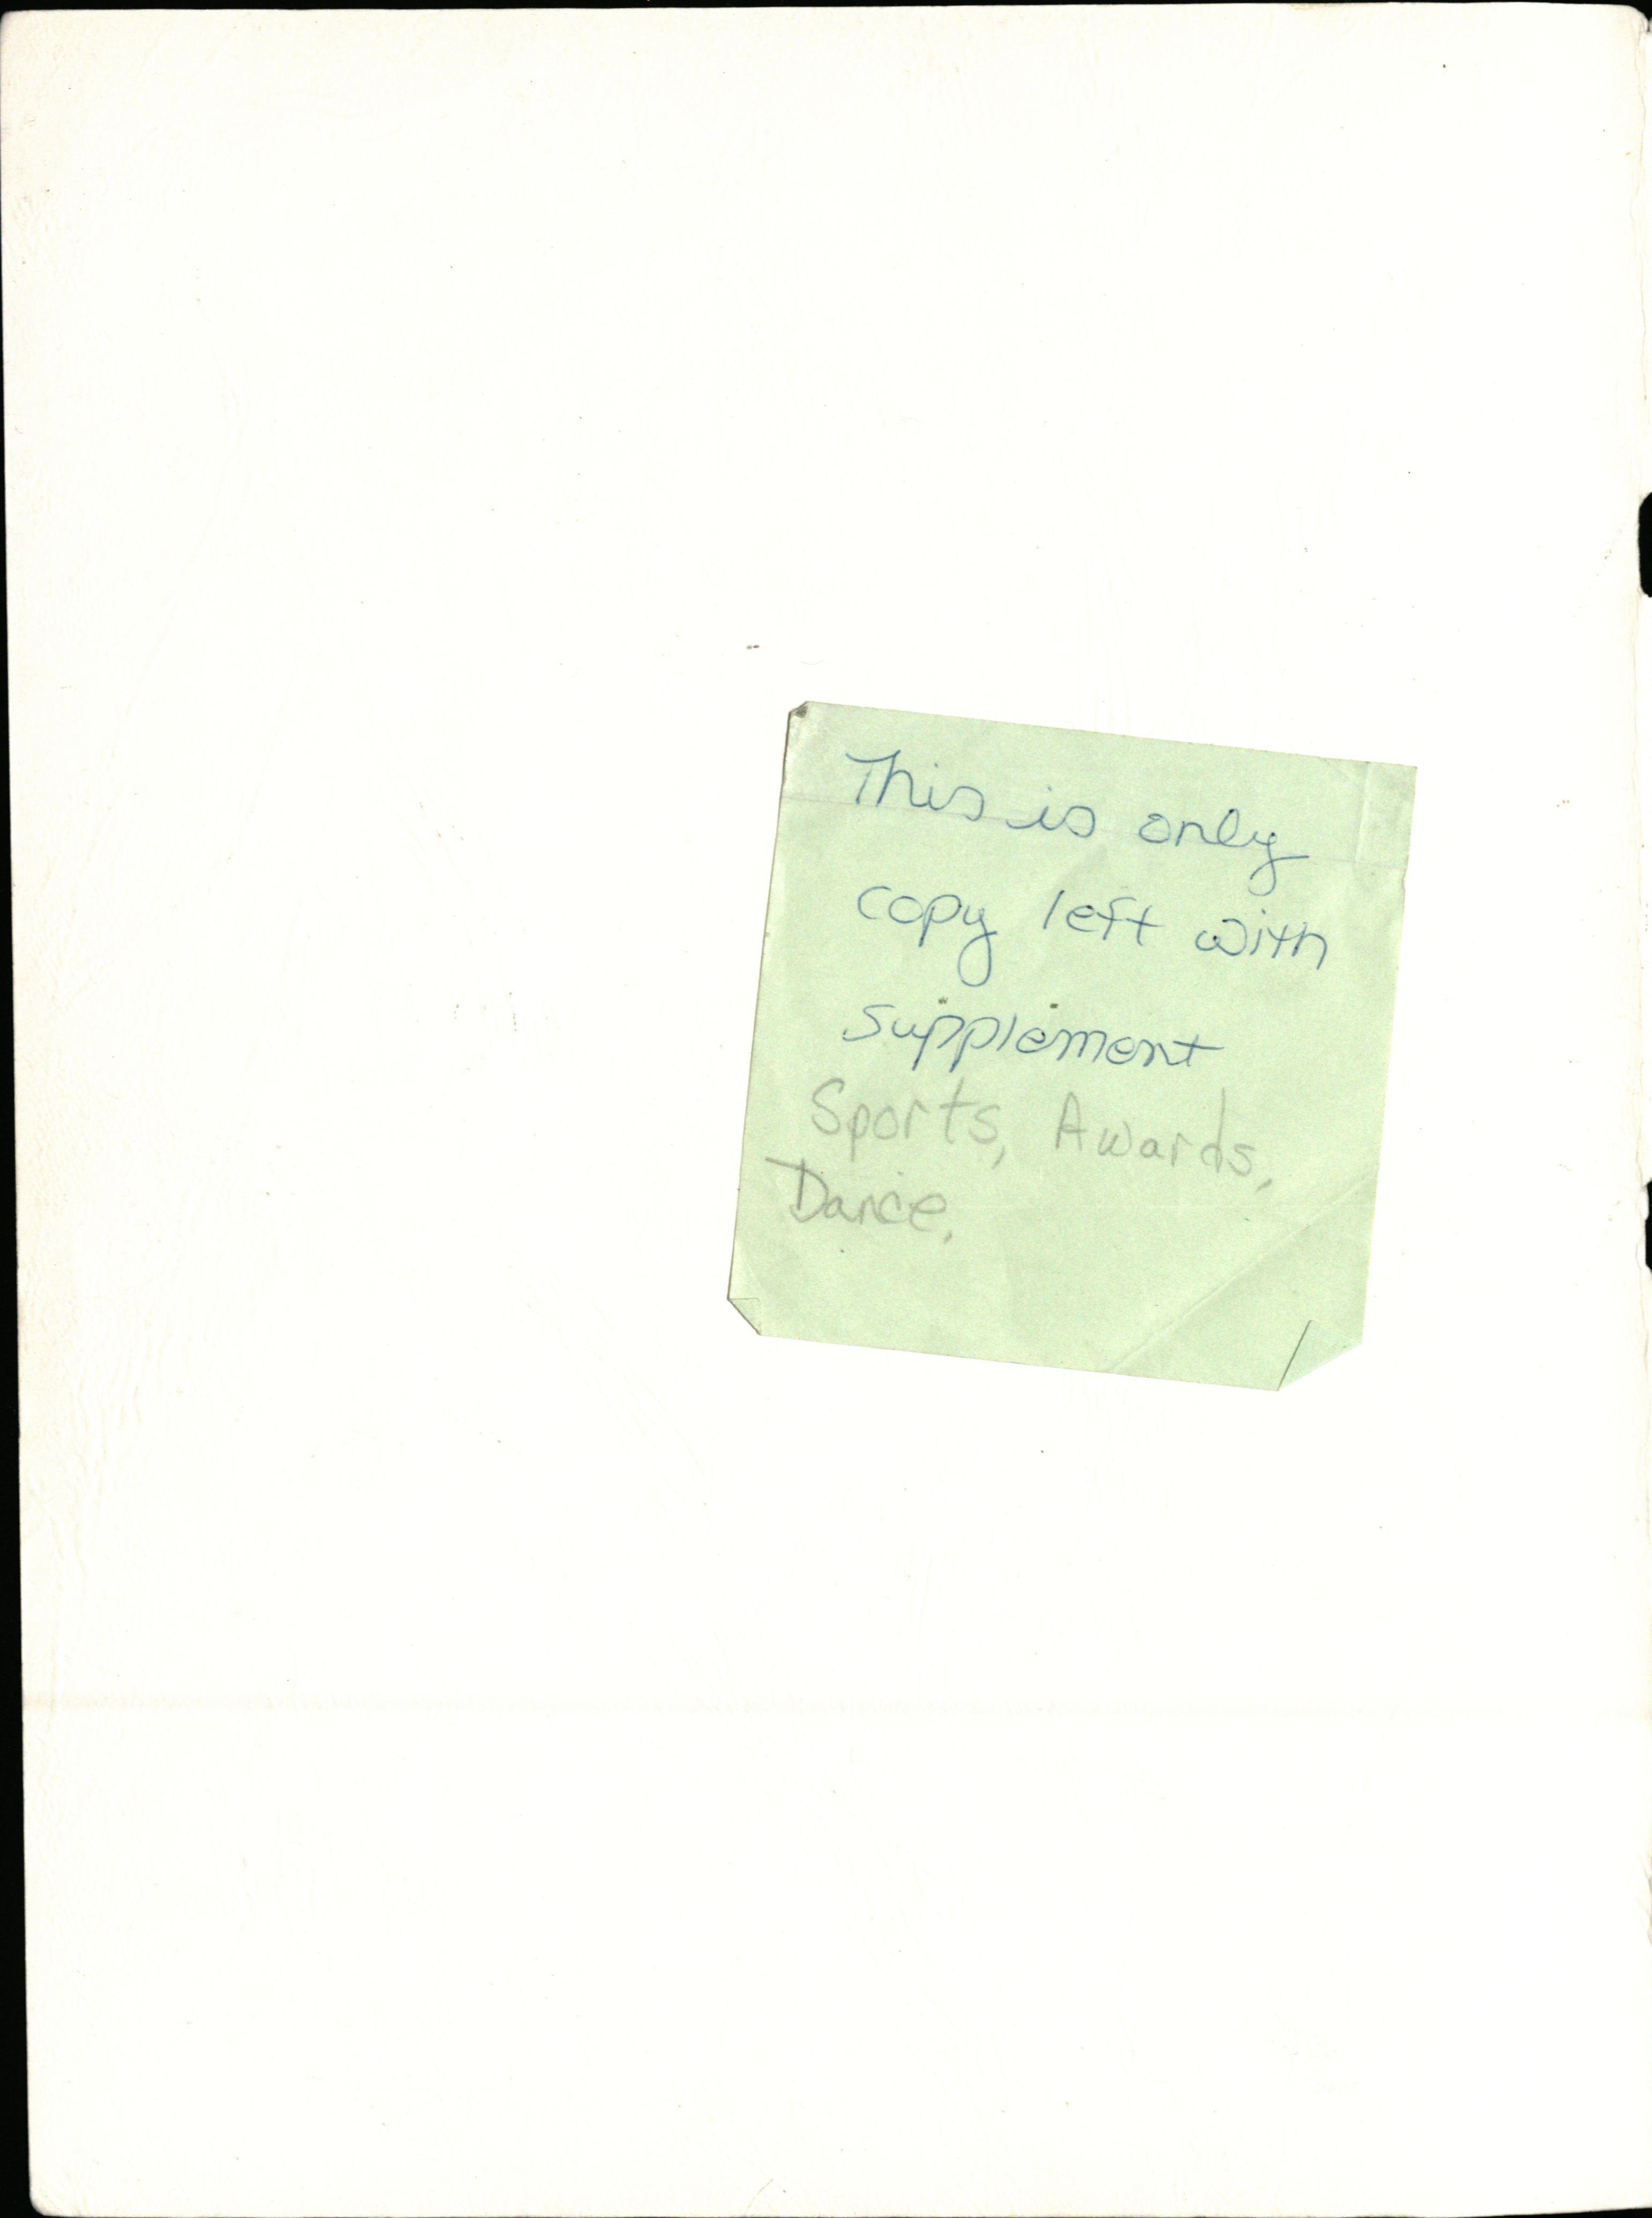 This is only
copy left with
supplement
Sports, Awards,
Dance.